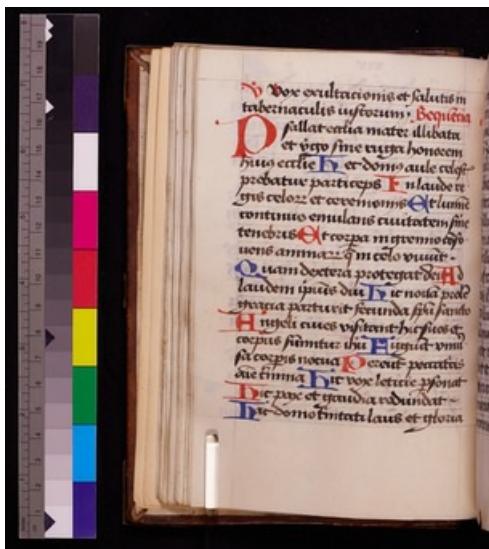 V Vox exultacionis et salutis in
tabernaculis iustorum. Sequencia
Psallat ecclia mater illibata
et vgo sine ruga honorem
huius ecclie Hec domus aule celest
probatur particeps In laude re
gis celorum et ceremoniis Et lumine
continuo emulans ciuitatem sine
tenebris Et corpa in gremio confo
uens animarum q in celo viuunt.
Quam dextera protegat dei Ad
laudem ipius diu Hic noua prole
gracia parturit fecunda spu sancto
Angeli ciues visitant hic suos et
corpus sumitur ihu Fugiunt vniu
sa corpis nocua Pereunt peccatricis
aie crimina Hic vox leticie psonat
Hic pax et gaudia redundat
Hac domo trinitati laus et gloria